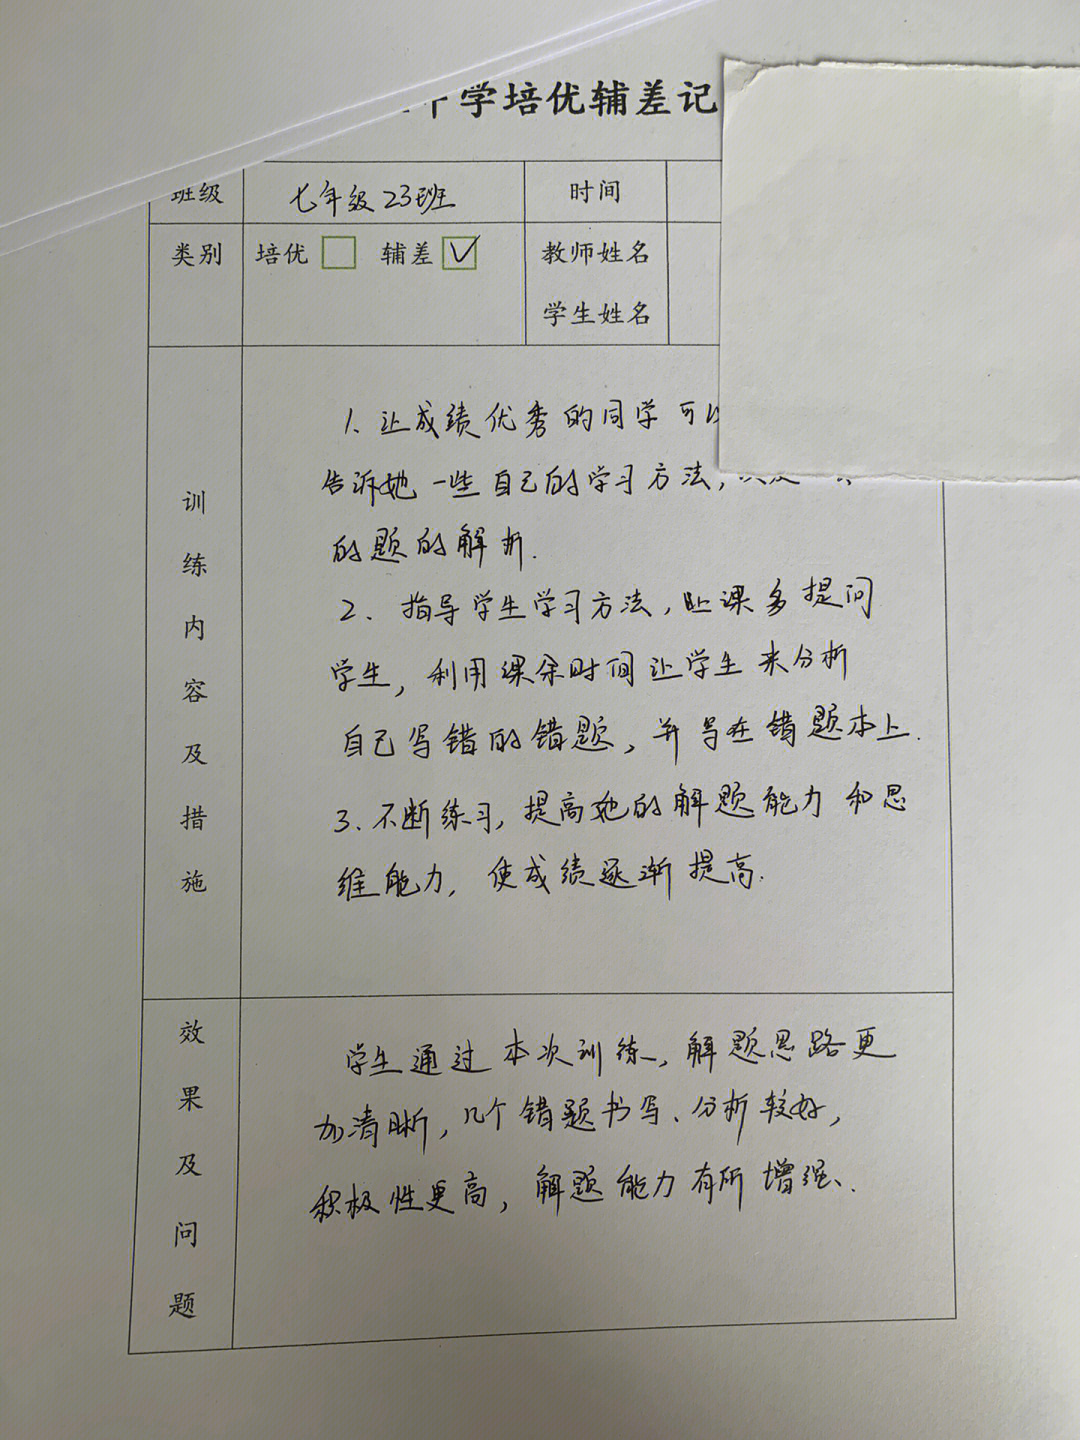 学培优辅差记
班级 七年级23班 时间
类别 培优 辅差 ✓ 教师姓名
学生姓名
训练内容及措施
1、让成绩优秀的同学可以
告诉她一些自己的学习方法,以及
的题的解析.
2、指导学生学习方法,上课多提问
学生,利用课余时间让学生来分析
自己写错的错题,并写在错题本上.
3、不断练习,提高她的解题能力和思
维能力,使成绩逐渐提高.
效果及问题
学生通过本次训练,解题思路更
加清晰,几个错题书写、分析较好,
积极性更高,解题能力有所增强、.